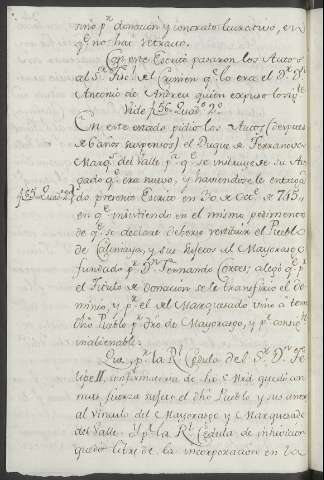 sino pr. donacion y contrato lucrativo, en
qe. no hai retrato.
Con este Escrito pasaron los Autos
al Sr. Fiscl. del Crimen qe. lo era el Dr. Dn.
Antonio de Andreu quien expuso lo sigte.
Vide f. 56. Quadno. 2o.
En este estado pidió los Autos (despues
de 6 años suspensos) el Duque de Terranova
Marqs. del Valle pa. qe. se instruyese su Abo
gado qe. era nuevo, y haviendosele entrega
f. 65. Quadno. 2o.
do presentó Escrito en 30 de Octe. de 715,
en qe. insistiendo en el mismo pedimento
de qe. se declare deberse restituir el Pueblo
de Calimaya, y sus sujetos al Mayorasgo
fundado pr. Dn. Fernando Cortes; alegó qe. pr.
el Titulo de donacion se le transfirió el do
minio, y pr. el del Marquesado vino a tener
dho. Pueblo pr. dro. de Mayorasgo, y pr. consigte.
inalienable.
Que pr. la Rl. Cedula del Sr. Dn. Fe
lipe II. confirmatoria de la merced quedó con
mas fuerza sujeto el dho. Pueblo y sus anexos
al vinculo del Mayorasgo y Marquesado
del Valle. Y pr. la Rl. Cedula de inhivicion
quedó libre de la incorporacion en la